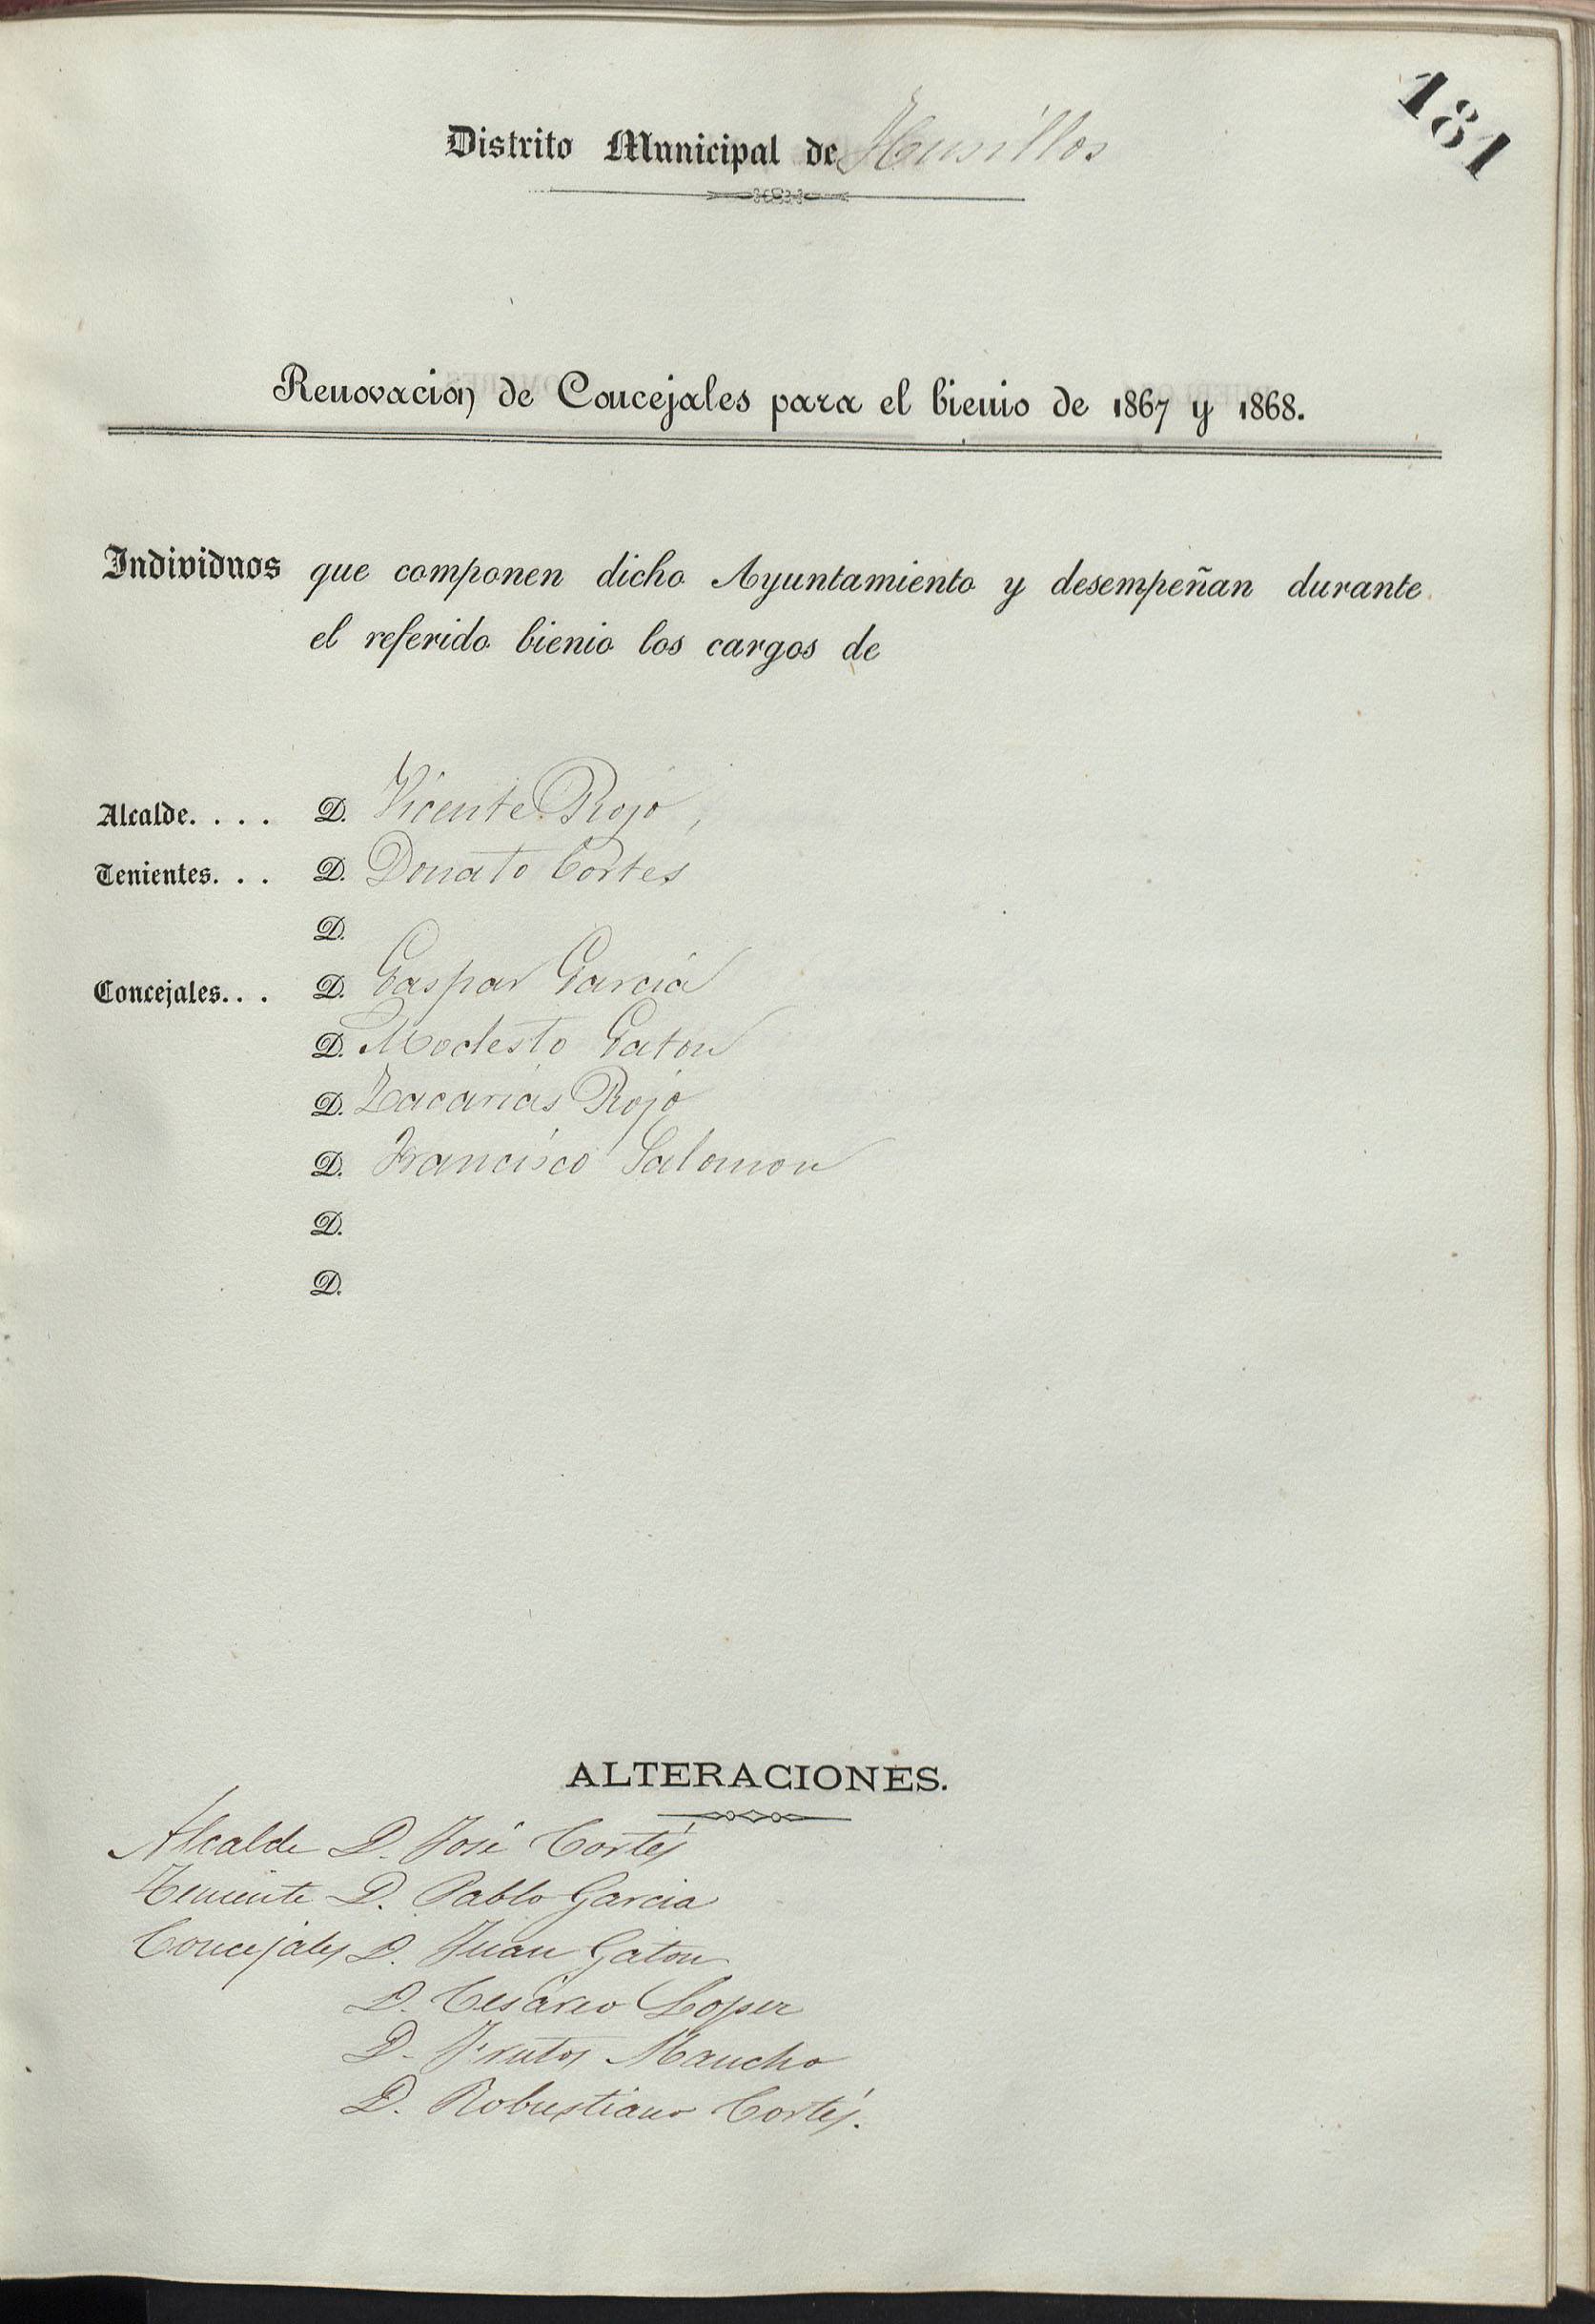 181
Distrito Municipal de Husillos
Renovacion de Concejales para el bienio de 1867 y 1868.
Individuos que componen dicho Ayuntamiento y desempeñan durante
el referido bienio los cargos de
Alcalde. . . . D. Vicente Rojo,
Tenientes. . . D. Donato Cortes
D.
Concejales. . . D. Gaspar García
D. Modesto Gaton
D. Zacarías Rojo
D. Francisco Salomon
D.
D.
ALTERACIONES.
Alcalde D. José Cortés
Teniente D. Pablo Garcia
Concejales D. Juan Gaton
D. Cesáreo Lopez
D. Frutos Mancho
D. Robustiano Cortés.